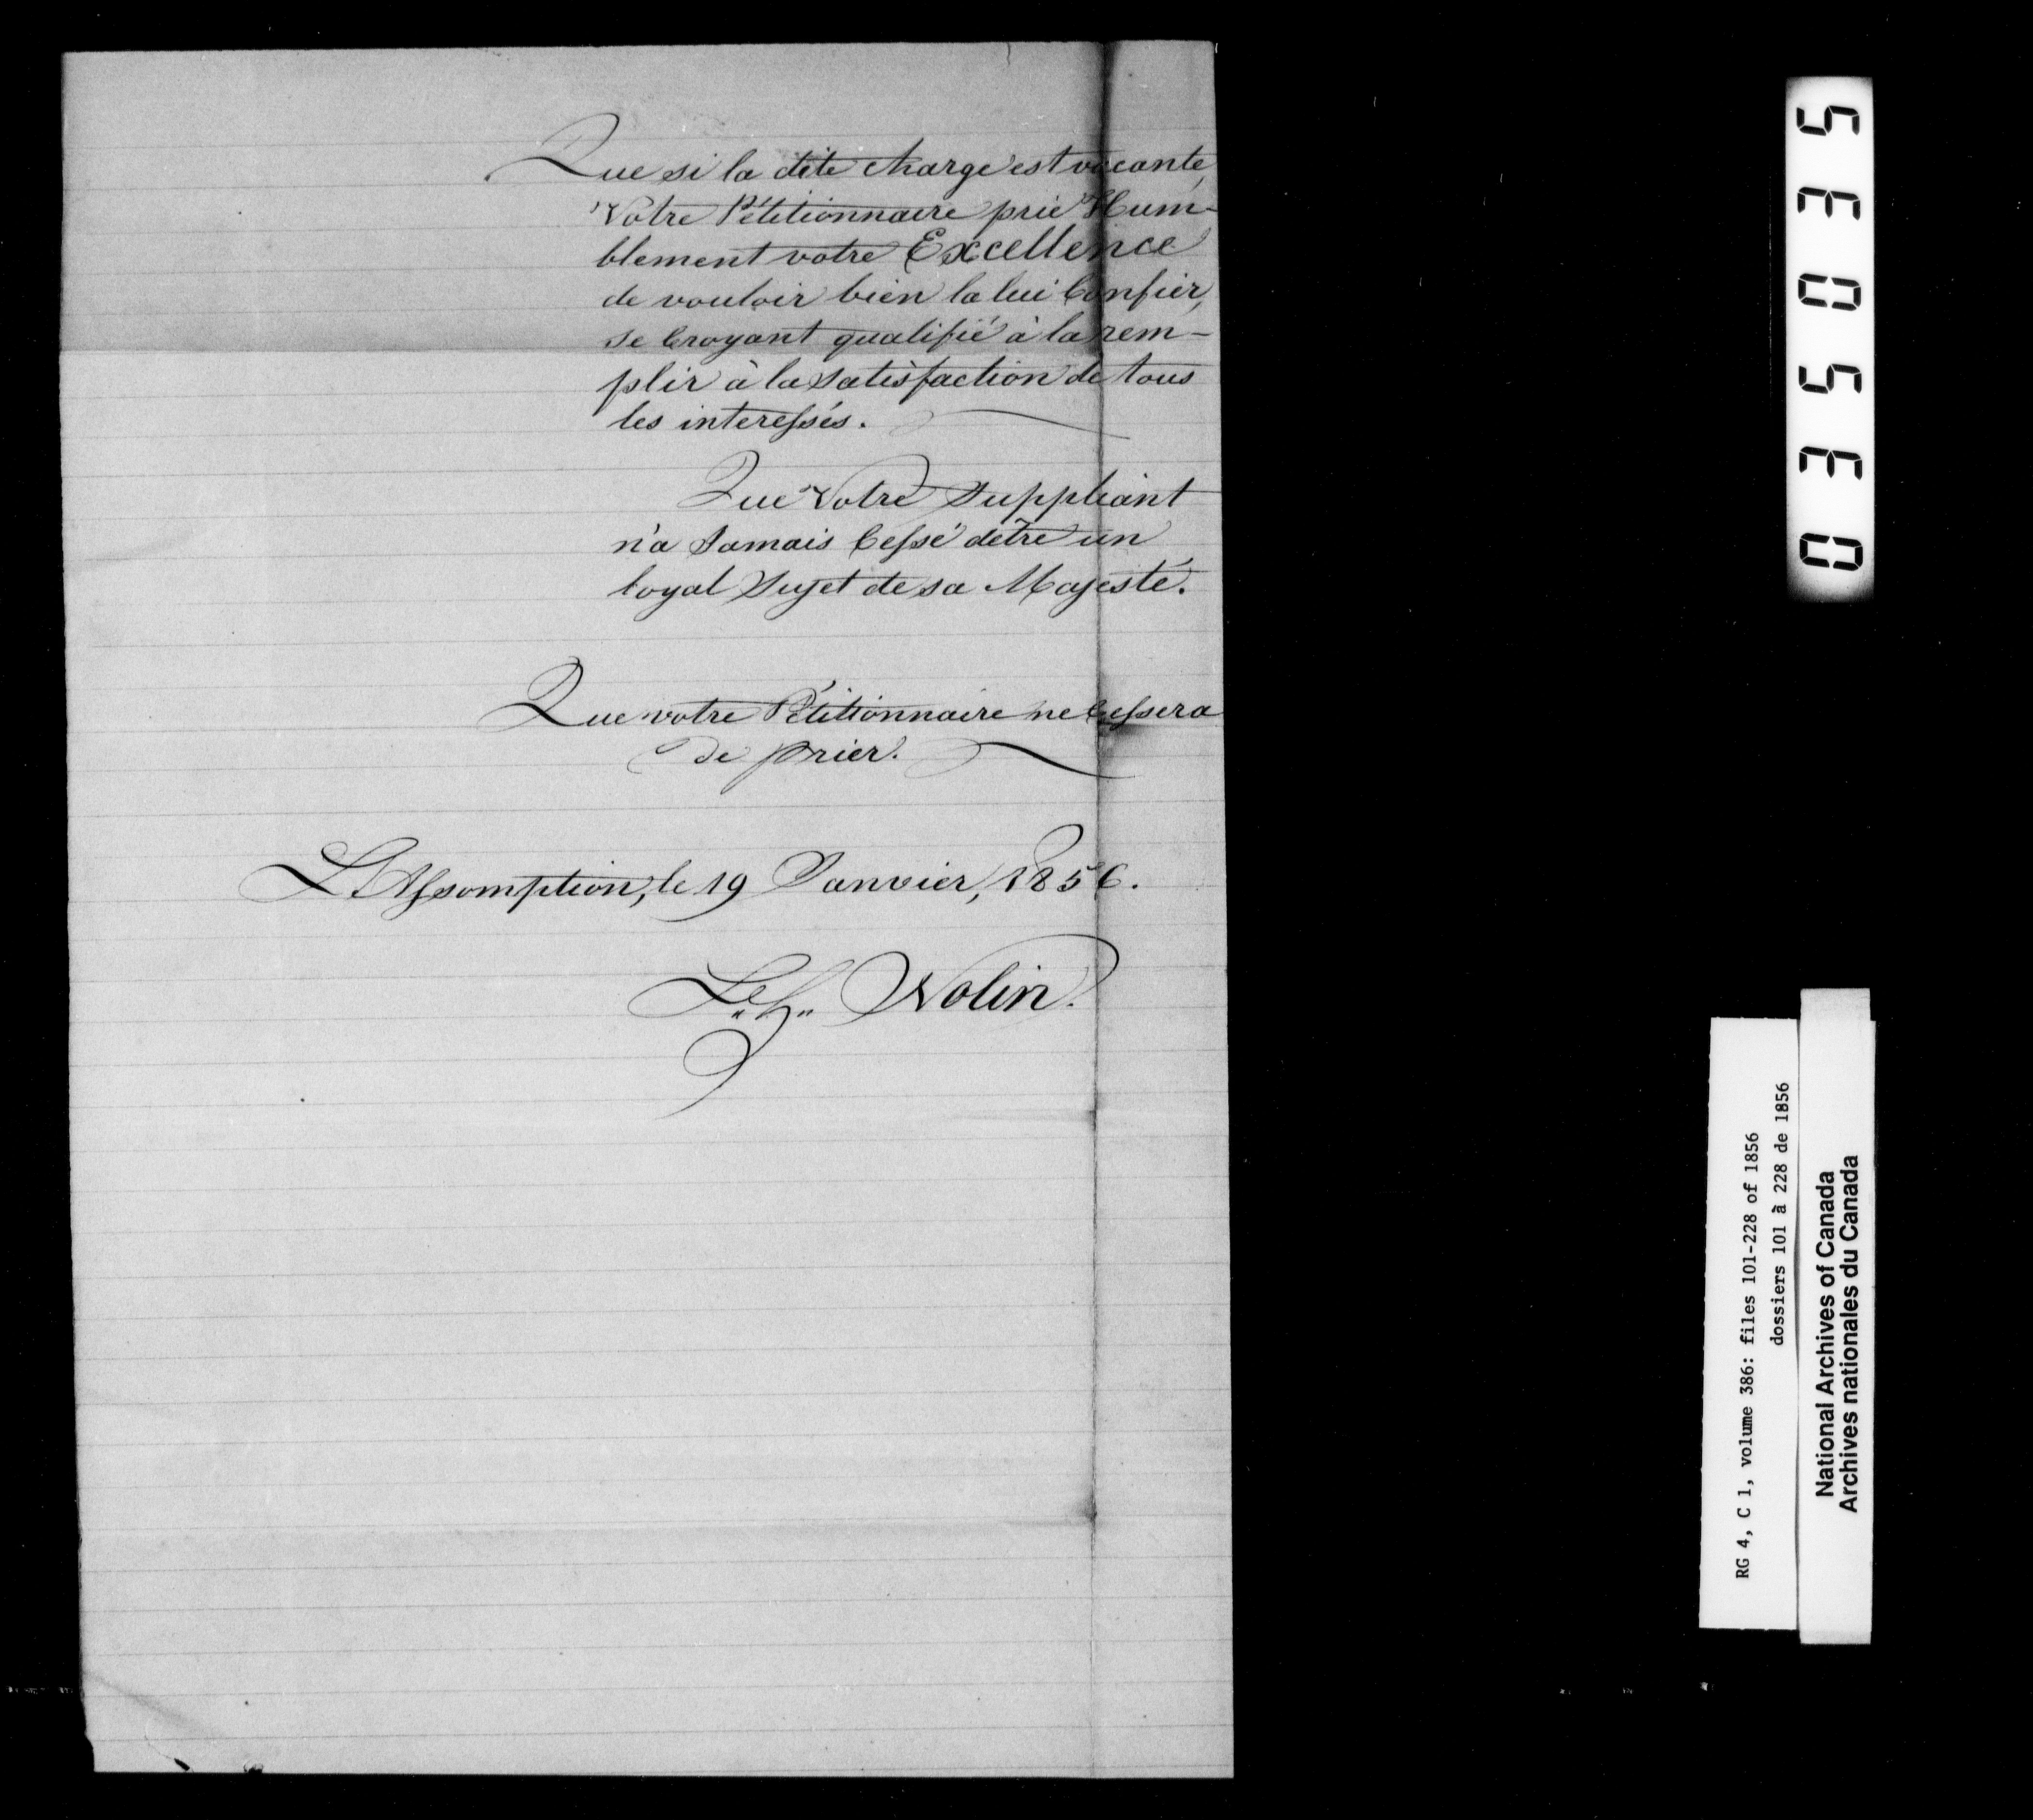 Que si la dite charge est vacante,
Votre Pétitionnaire prie Hum-
blement votre Excellence
de vouloir bien la lui Confier,
se Croyant qualifié à la rem-
plir à la Satisfaction de tous
les interessés.
Que Votre Suppliant
n'a Jamais Cessé d'être un
loyal Sujet de sa Majesté.
Que votre Pétitionnaire ne Cessera
de prier.
L'Assomption, le 19 Janvier, 1856.
Nolin.
035035
RG 4, C 1, volume 386: files 101-228 of 1856
dossiers 101 à 228 de 1856
National Archives of Canada
Archives nationales du Canada